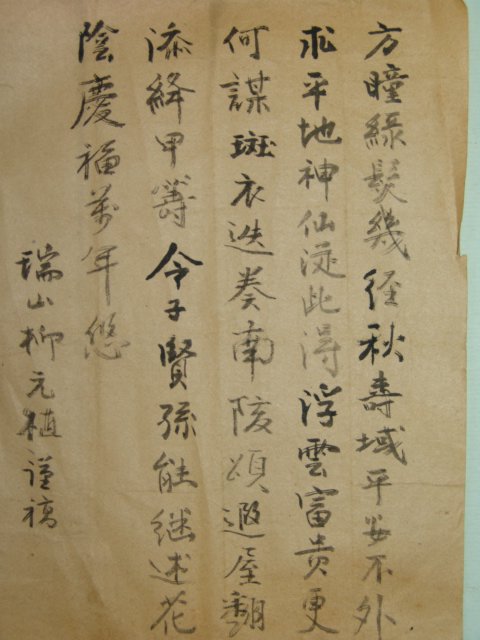 方瞳綠髮幾徑秋壽域平安不外
求平地神仙從此得浮雲富貴更
何謀斑衣迭奏南陔頌遐屋翻
添絳甲籌令子賢孫能繼述花
陰慶福萬年悠
瑞山柳元植謹稿